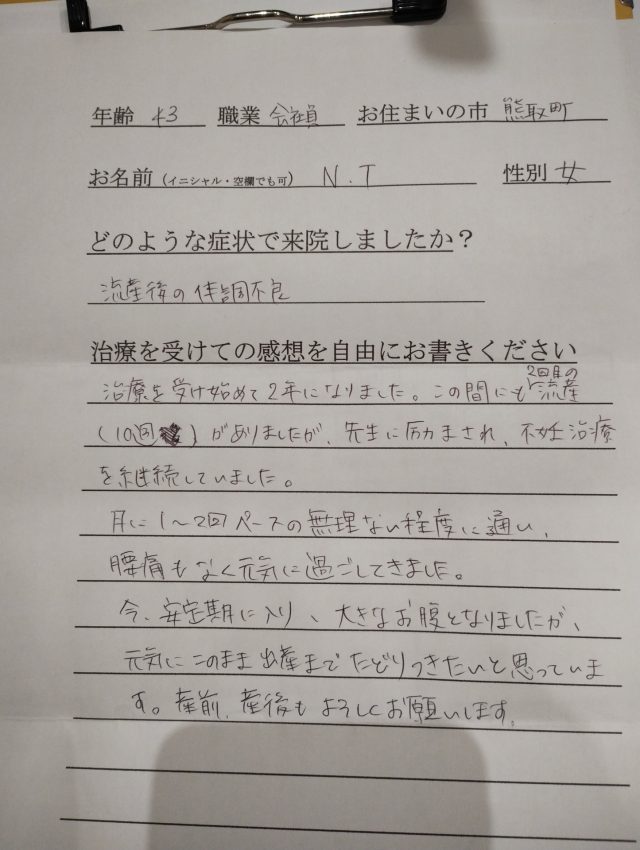 年齢 43 職業 会社員 お住まいの市 熊取町
お名前 (イニシャル・空欄でも可) N.T 性別 女
どのような症状で来院しましたか?
流産後の体調不良
治療を受けての感想を自由にお書きください
治療を受け始めて2年になりました。この間にも2回目の流産
(10週)がありましたが、先生に励まされ、不妊治療
を継続していました。
月に1〜2回ペースの無理ない程度に通い、
腰痛もなく元気に過ごしてきました。
今、安定期に入り、大きなお腹となりましたが、
元気にこのまま出産までたどりつきたいと思っていま
す。産前、産後もよろしくお願いします。